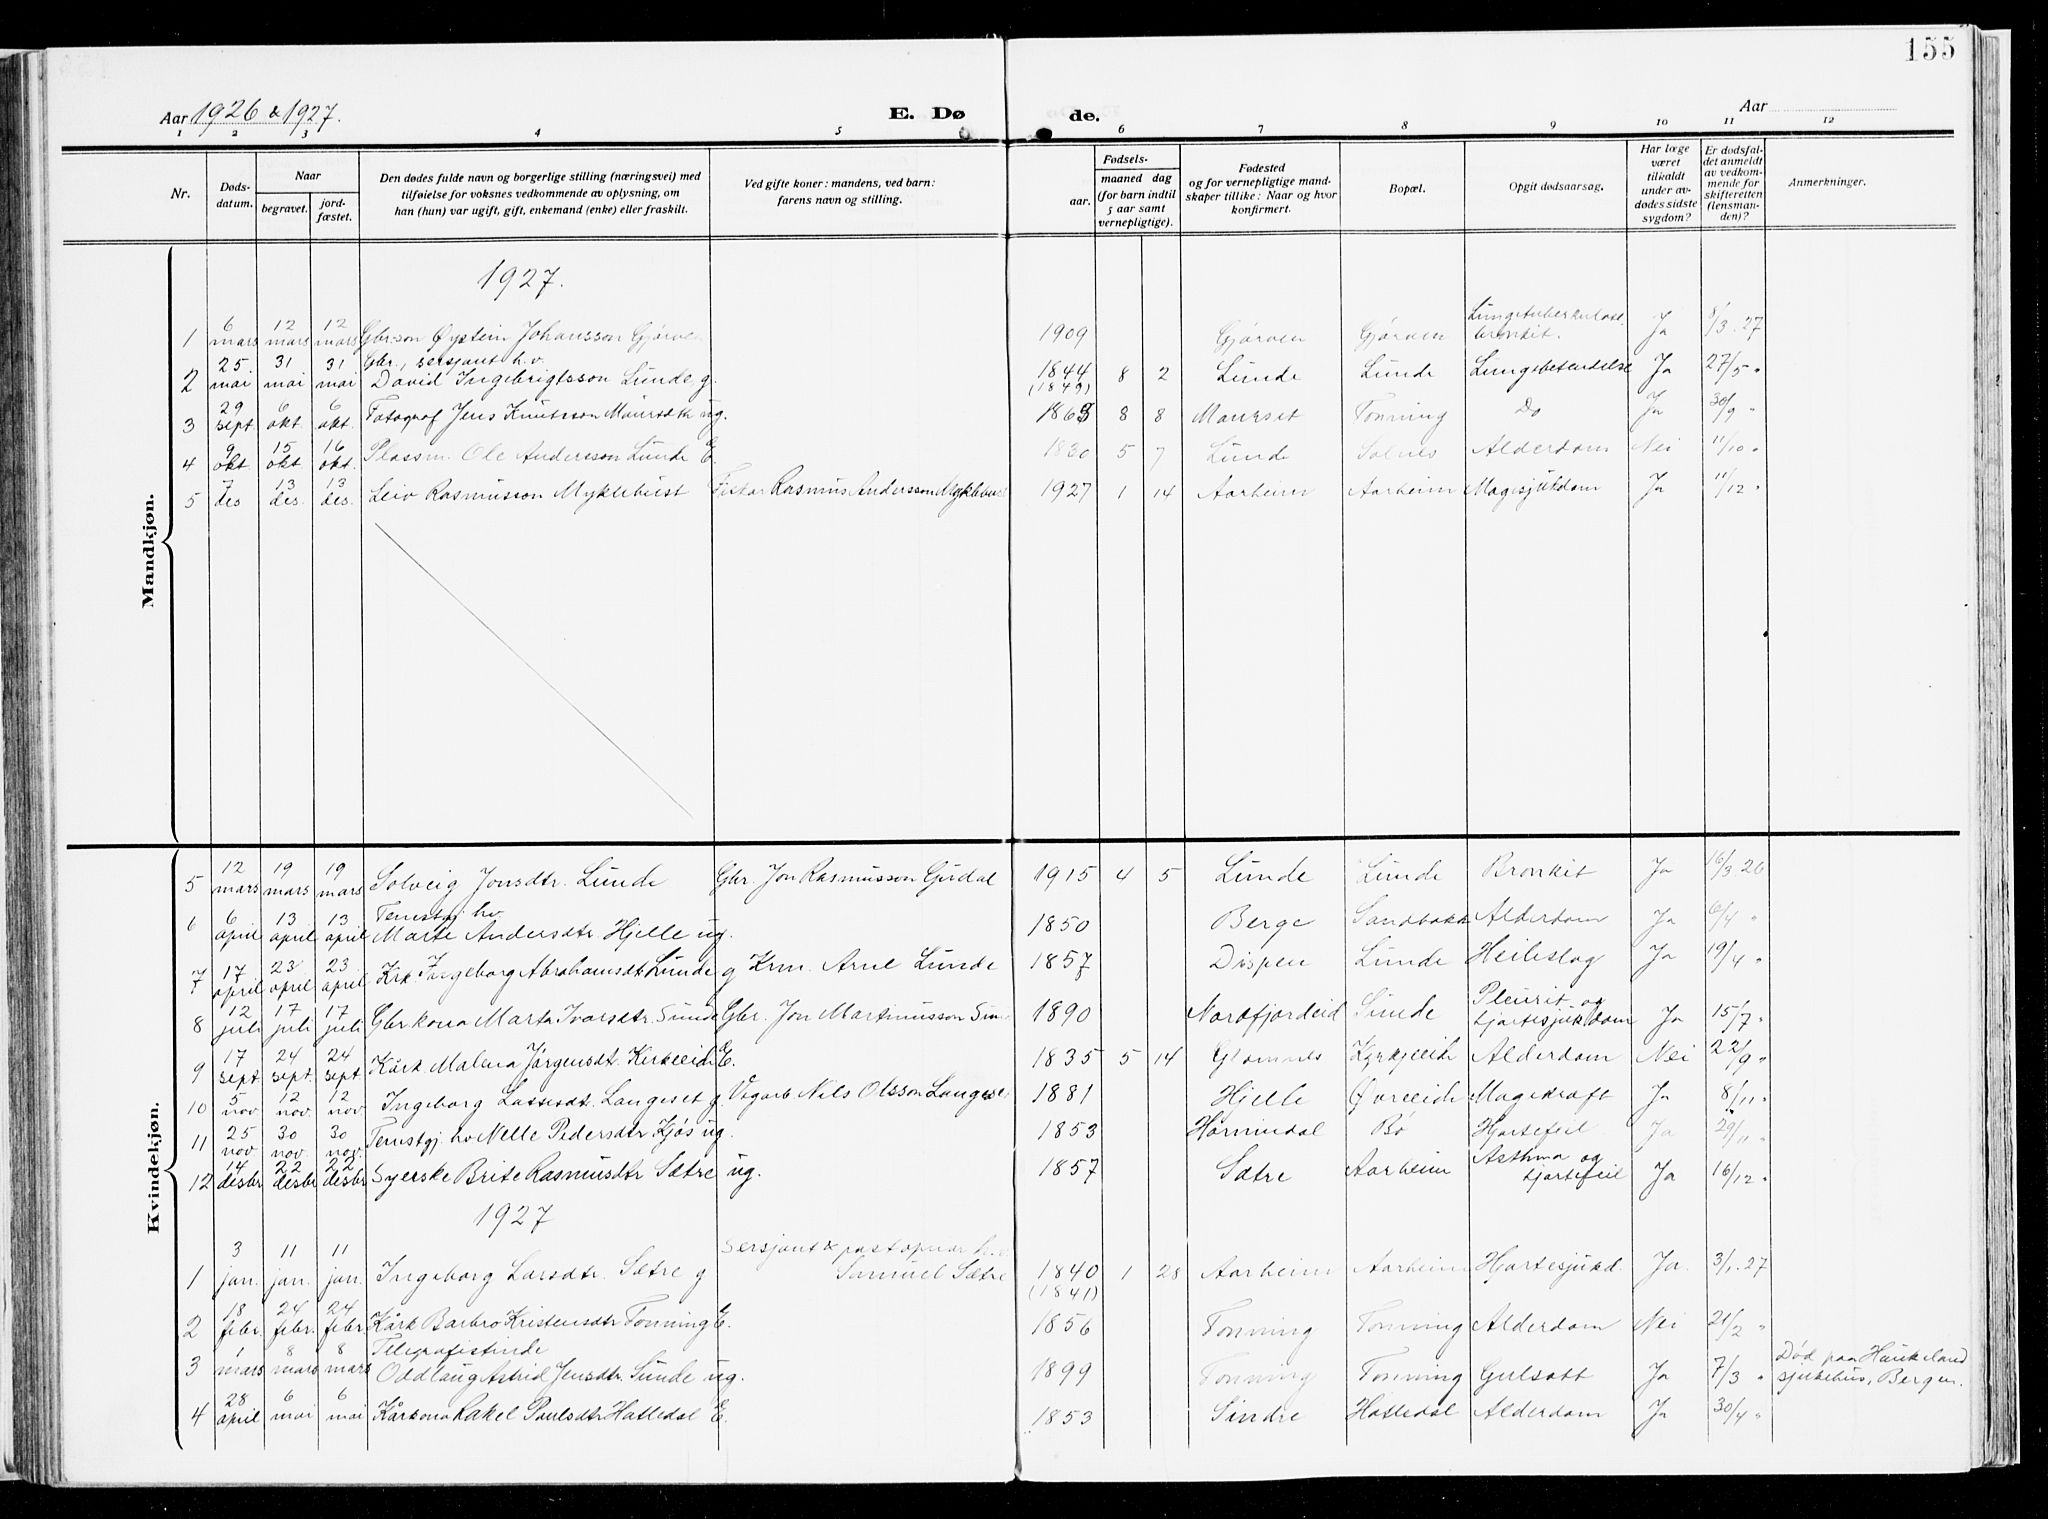 155
Aar 1926 & 1927.
E. Dø
de.
Aar
1 2 3 4 5 6 7 8 9 10 11 12
Nr.
Døds-datum.
Naar
begravet.
jord-fæstet.
Den dødes fulde navn og borgerlige stilling (næringsvei) med
tilføielse for voksnes vedkommende av oplysning, om
han (hun) var ugift, gift, enkemand (enke) eller fraskilt.
Ved gifte koner: mandens, ved barn:
farens navn og stilling.
Fødsels-
aar.
maaned dag
(for barn indtil
5 aar samt
vernepligtige).
Fødested
og for vernepligtige mand-
skaper tillike: Naar og hvor
konfirmert.
Bopæl.
Opgit dødsaarsag.
Har læge
været
tilkaldt
under av-
dødes sidste
sygdom?
Er dødsfal-
det anmeldt
av vedkom-
mende for
skifteretten
(lensman-
den)?
Anmerkninger.
Mandkjøn.
1927.
1 6 mars 12 mars 12 mars Gbr.son Øystein Johansson Gjørven 1909 Gjørven Gjørven Lungetuberkulose, bronkit. Ja 8/3.27
2 25 mai 31 mai 31 mai Gbr., sersjant h.v. David Ingebrigtsson Lunde g. 1844 (1849) 8 2 Lunde Lunde Lungebetendelse Ja 27/5 "
3 29 sept. 6 okt. 6 okt. Fotograf Jens Knutsson Maurseth ug. 1863 8 8 Maurset Tonning Do Ja 30/9 "
4 9 okt. 15 okt. 16 okt. Plassm. Ole Andersson Lunde E. 1830 5 7 Lunde Solnes Alderdom Nei 11/10 "
5 7 des 13 des. 13 des. Leiv Rasmusson Myklebust Fiskar Rasmus Andersson Myklebust 1927 1 14 Aarheim Aarheim Magesjukdom Ja 11/12 "
Kvindekjøn.
5 12 mars 19 mars 19 mars Solveig Jonsdtr. Lunde Gbr. Jon Rasmusson Gudal 1915 4 5 Lunde Lunde Bronkit Ja 16/3 26
6 6 april 13 april 13 april Tenestgj. hv. Marte Andersdtr. Hjelle ug. 1850 Berge Sandbakk Alderdom Ja 6/4 "
7 17 april 23 april 23 april Krk. Ingeborg Abrahamsdtr. Lunde g Krm. Arne Lunde 1857 Dispen Lunde Heileslag Ja 19/4 "
8 12 juli 17 juli 17 juli Gbrkona Marta Ivarsdtr. Sunde Gbr. Jon Martinusson Sunde 1890 Nordfjordeid Sunde Pleurit og hjartesjukdom Ja 15/7 "
9 17 sept. 24 sept. 24 sept. Kårk. Malena Jørgensdt. Kirkeeide E. 1835 5 14 Glomnes Kyrkjeeide Alderdom Nei 22/9 "
10 5 nov. 12 nov. 12 nov. Ingeborg Lassesdt. Langeset g Vegarb. Nils Olsson Langeset 1881 Hjelle Øvreeide Magekræft Ja 8/11 "
11 25 nov. 30 nov. 30 nov. Tenestgj. hv. Nelle Pedersdtr Kjøs ug. 1853 Hornindal Bø Hjartefeil Ja 29/11 "
12 14 desbr 22 desbr 22 desbr Syerske Brite Rasmusdtr Sætre ug. 1857 Sætre Aarheim Asthma og hjartefeil Ja 16/12 "
1927
1 3 jan. 11 jan. 11 jan. Ingeborg Larsdtr. Sætre g Sersjant & postopnar h.v. Samuel Sætre 1840 (1841) 1 28 Aarheim Aarheim Hjartesjukd. Ja. 3/1.27
2 18 febr. 24 febr. 24 febr Kårk Barbro Kristensdtr Tonning E. 1856 Tonning Tonning Alderdom Nei 21/2 "
3 1 mars 8 mars 8 mars Telegrafistinde Oddlaug Astrid Jensdtr. Sunde ug. 1899 Tonning Tonning Gulsott Ja 7/3 " Død paa Haukeland sjukehus, Bergen.
4 28 april 6 mai 6 mai Kårkona Rakel Paulsdtr Hatledal E. 1853 Sindre Hatledal Alderdom Ja 30/4 "